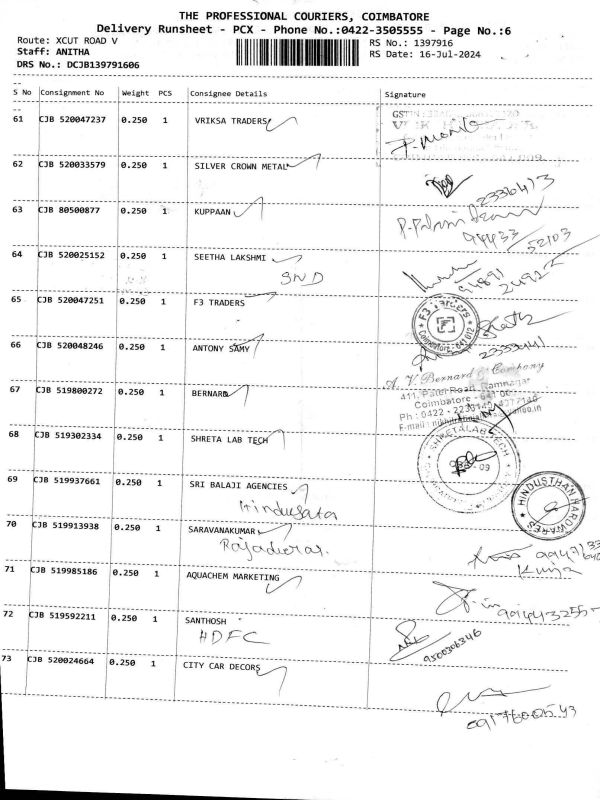 THE PROFESSIONAL COURIERS, COIMBATORE
Delivery Runsheet - PCX - Phone No.:0422-3505555 - Page No.:6
Route: XCUT ROAD V RS No.: 1397916
Staff: ANITHA RS Date: 16-Jul-2024
DRS No.: DCJB139791606
S No Consignment No Weight PCS Consignee Details Signature
61 CJB 520047237 0.250 1 VRIKSA TRADERS
62 CJB 520033579 0.250 1 SILVER CROWN METAL
2336413
63 CJB 80500877 0.250 1 KUPPAAN
94433
52103
64 CJB 520025152 0.250 1 SEETHA LAKSHMI
SND
65 CJB 520047251 0.250 1 F3 TRADERS
F3 Traders
Coimbatore - 641 012
66 CJB 520048246 0.250 1 ANTONY SAMY
A. V. Bernard & Company
67 CJB 519800272 0.250 1 BERNARD
411, Patel Road, Ramnagar
Coimbatore - 641 009
Ph : 0422 - 2230142, 4377140
68 CJB 519302334 0.250 1 SHRETA LAB TECH
SHRETA LAB TECH
69 CJB 519937661 0.250 1 SRI BALAJI AGENCIES
HINDUSTHAN HARDWARES
70 CJB 519913938 0.250 1 SARAVANAKUMAR
71 CJB 519985186 0.250 1 AQUACHEM MARKETING
72 CJB 519592211 0.250 1 SANTHOSH
HDFC
9500306346
73 CJB 520024664 0.250 1 CITY CAR DECORS